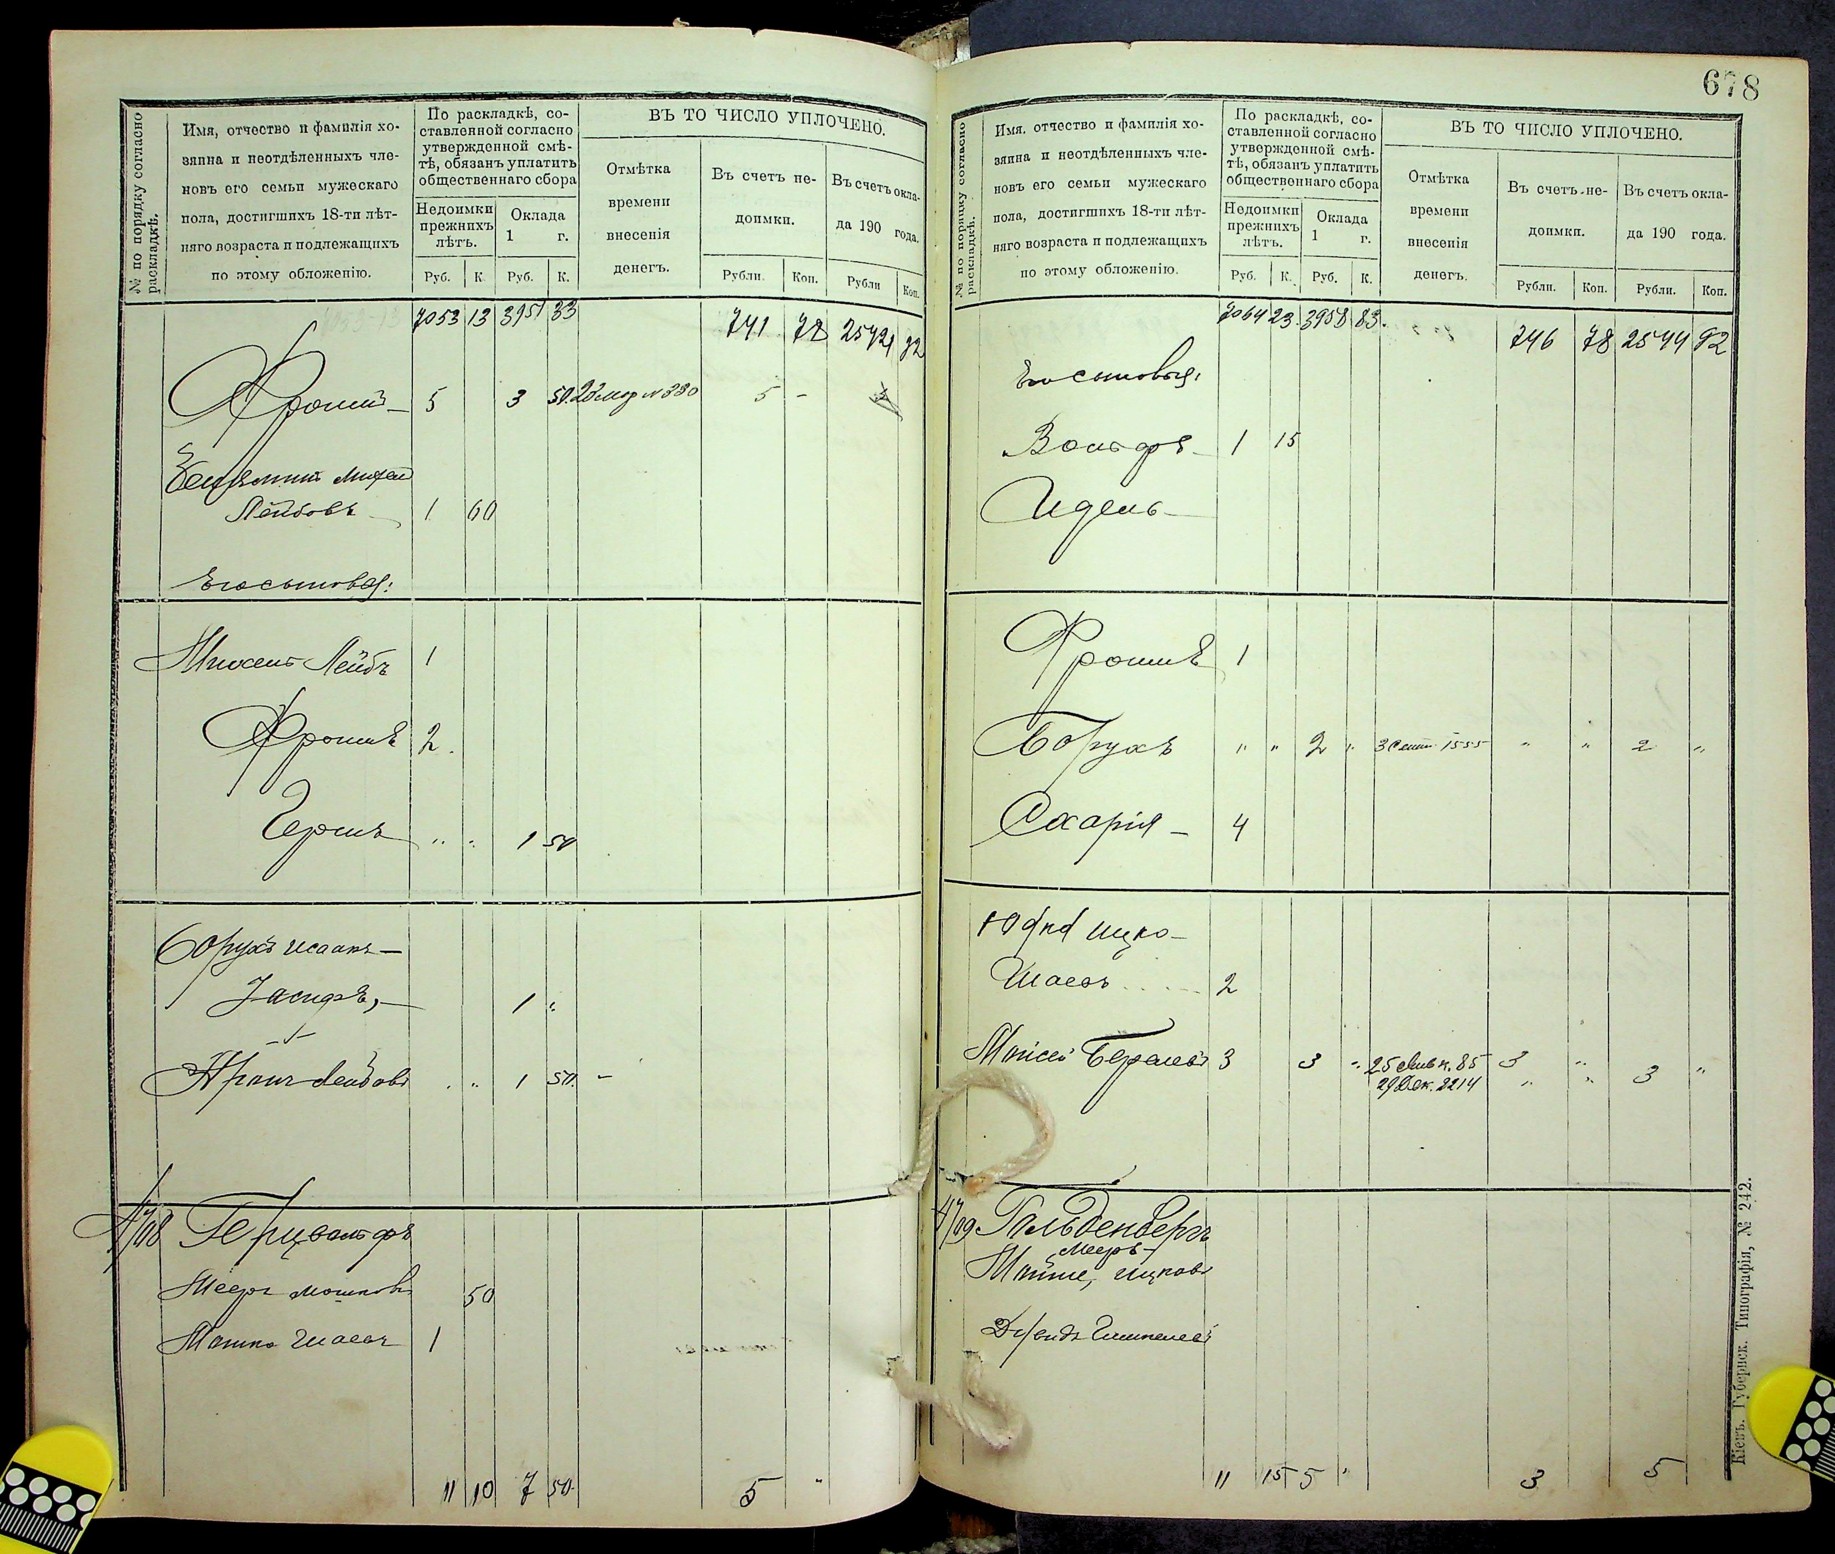 678
№ по порядку согласно раскладкѣ.
Имя, отчество и фамилія хо-
зяина и неотдѣленныхъ чле-
новъ его семьи мужескаго
пола, достигшихъ 18-ти лѣт-
няго возраста и подлежащихъ
по этому обложенію.
По раскладкѣ, со-
ставленной согласно
утвержденной смѣ-
тѣ, обязанъ уплатить
общественнаго сбора
Недоимки
прежнихъ
лѣтъ.
Оклада
1 г.
Руб. К. Руб. К.
ВЪ ТО ЧИСЛО УПЛОЧЕНО.
Отмѣтка
времени
внесенія
денегъ.
Въ счетъ не-
доимки.
Въ счетъ окла-
да 190 года.
Рубли. Коп. Рубли Коп.
7053 13 3951 33 741 78
Фроимъ 5 3 50 5 -
Лейбовъ 1 60
Его сыновья:
Лейбъ 1
Фроимъ 2
Гершъ " " 1 50
Борухъ Исаакъ
1 "
Лейбовъ " " 1 50
4708 Герцвольфъ
Мееръ Мошковъ 50
Мошко 1
11 10 7 50 5 "
№ по порядку согласно раскладкѣ.
Имя, отчество и фамилія хо-
зяина и неотдѣленныхъ чле-
новъ его семьи мужескаго
пола, достигшихъ 18-ти лѣт-
няго возраста и подлежащихъ
по этому обложенію.
По раскладкѣ, со-
ставленной согласно
утвержденной смѣ-
тѣ, обязанъ уплатить
общественнаго сбора
Недоимки
прежнихъ
лѣтъ.
Оклада
1 г.
Руб. К. Руб. К.
ВЪ ТО ЧИСЛО УПЛОЧЕНО.
Отмѣтка
времени
внесенія
денегъ.
Въ счетъ не-
доимки.
Въ счетъ окла-
да 190 года.
Рубли. Коп. Рубли. Коп.
7064 23 3958 83 746 78 2544 92
Его сыновья:
Вольфъ 1 15
Идель
Фроимъ 1
Борухъ " " 2 " 3 Сент 1555 " " 2 "
Сахарія 4
Юдка Ицко-
2
Моисей 3 3 " 25 85 3 "
29 Дек. 2214 " " 3 "
4709 Гольденбергъ
Мееръ-
Ицковъ
11 15 5 " 3 5
Кіевъ. Губернск. Типографія, № 242.